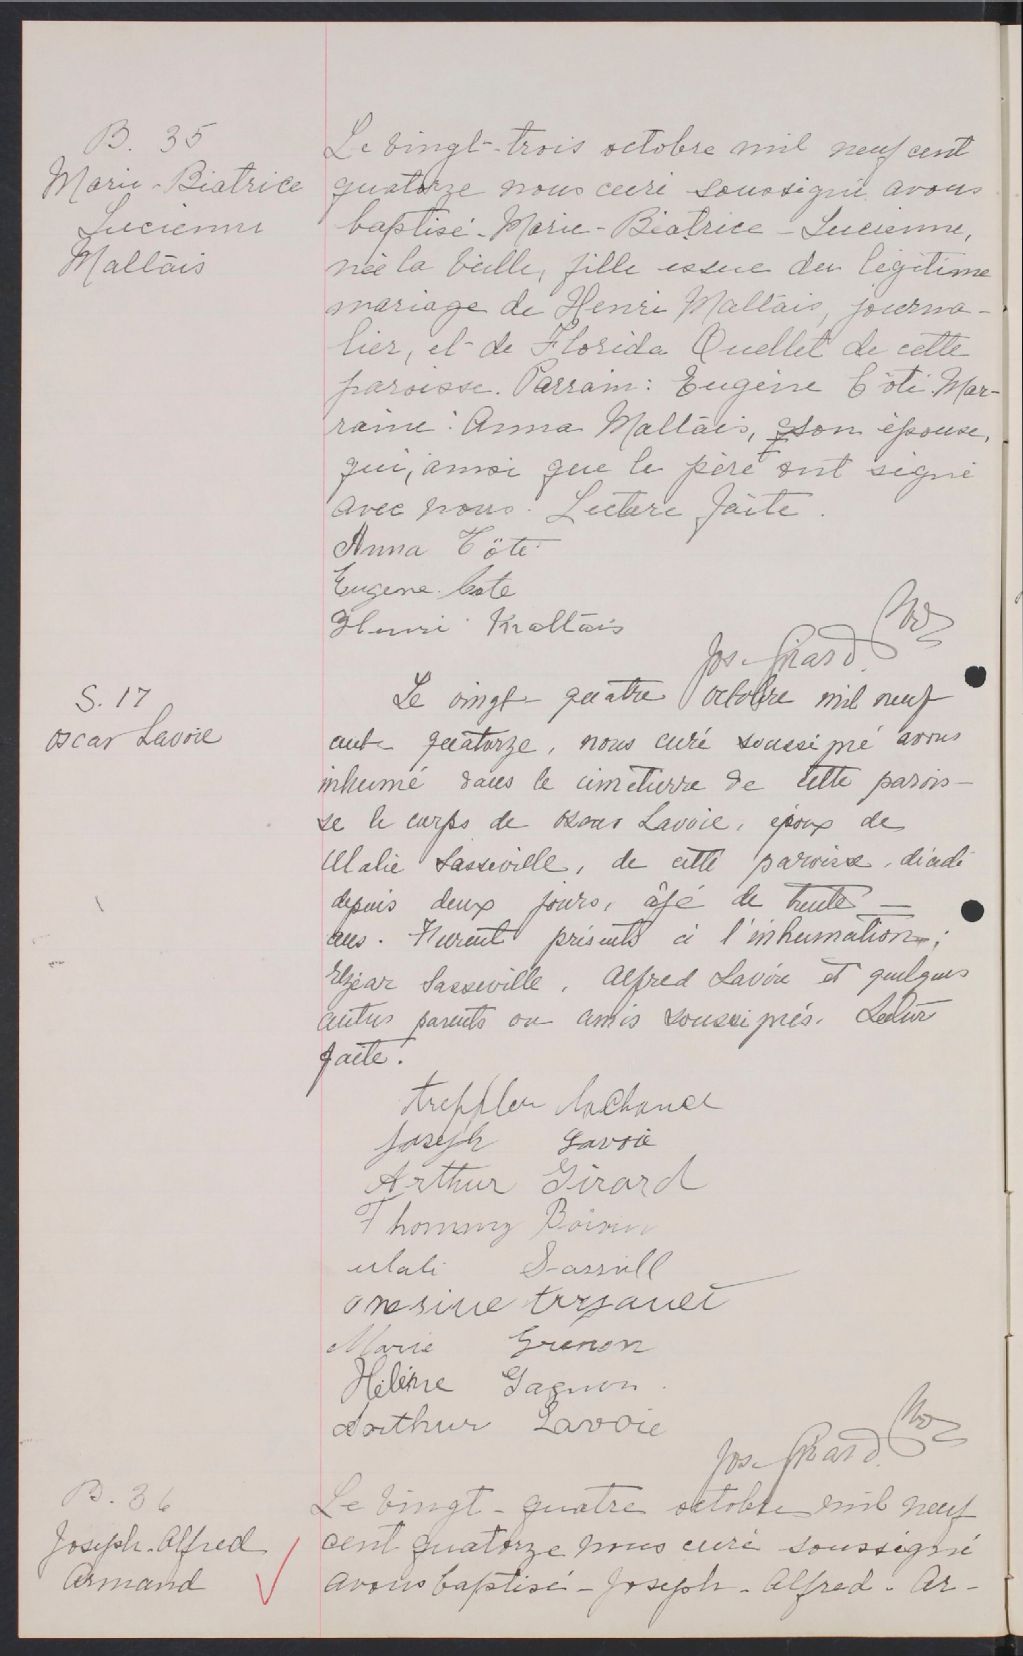 B. 35
Marie-Béatrice
Lucienne
Maltais
Le vingt-trois octobre mil neuf cent
quatorze nous curé soussigné avons
baptisé - Marie - Béatrice - Lucienne,
née la veille, fille issue du légitime
mariage de Henri Maltais, journa-
lier, et de Florida Ouellet de cette
paroisse. Parrain: Eugène Côté. Mar-
raine: Anna Maltais, son épouse,
qui, ainsi que le père ont signé
avec nous. Lecture faite.
Anna Côté
Eugene Cote
Henri Maltais
Jos. Girard Ptre
S. 17
Oscar Lavoie
Le vingt-quatre octobre mil neuf
cent quatorze, nous curé soussigné avons
inhumé dans le cimetière de cette parois-
se le corps de Oscar Lavoie, époux de
Ulalie Sasseville, de cette paroisse, décédé
depuis deux jours, âgé de trente -
ans. Furent présents à l'inhumation;
Elzéar Sasseville, Alfred Lavoie et quelques
autres parents ou amis soussignés. Lecture
faite.
treffler laChance
Joseph Lavoie
Arthur Girard
Thommy Boivin
ulali Sassvill
onesime
Marie Grenon
Hélène Gagnon
Arthur Lavoie
Jos. Girard Ptre
B. 36
Joseph-Alfred
Armand
Le vingt-quatre octobre mil neuf
cent quatorze nous curé soussigné
avons baptisé - Joseph - Alfred - Ar-